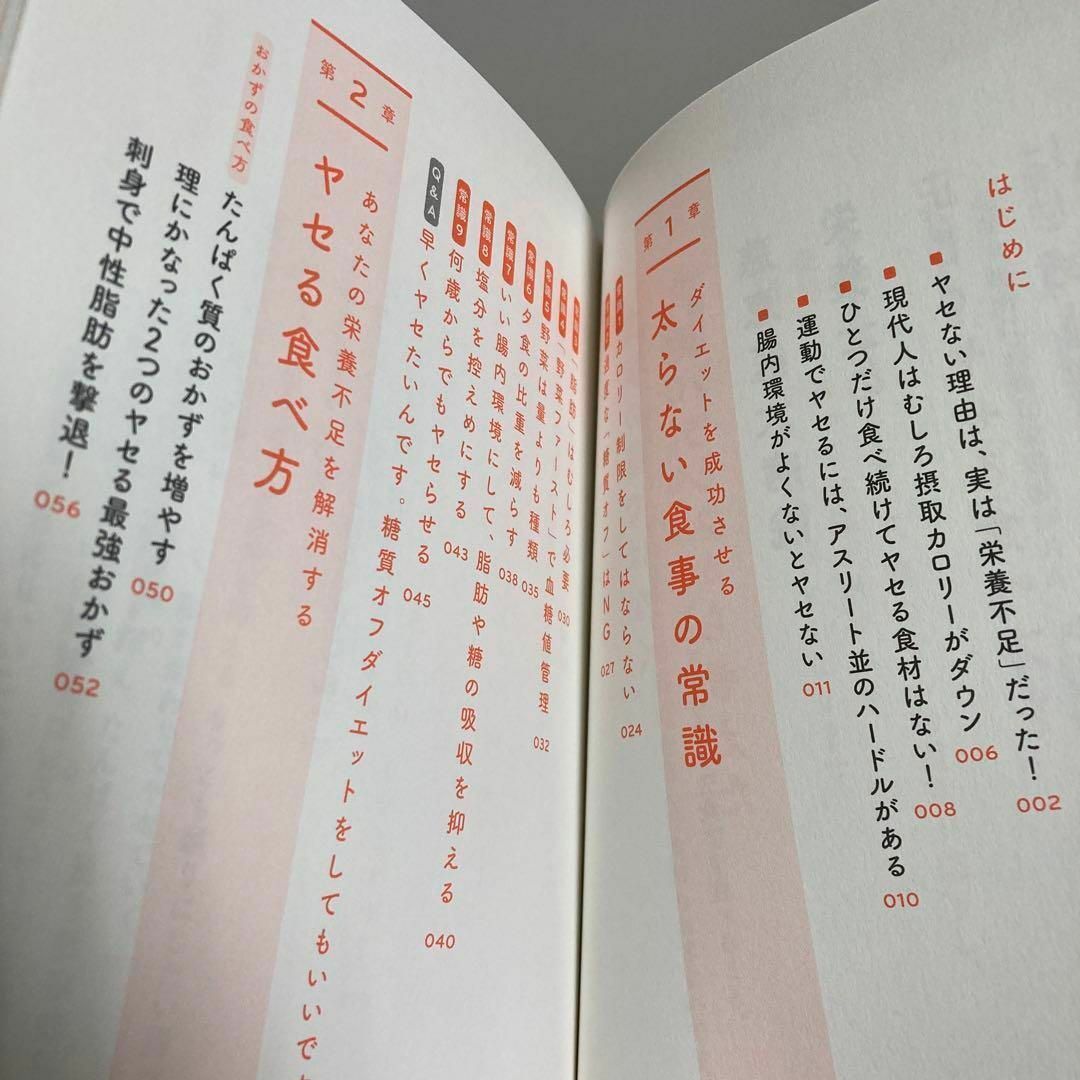 はじめに
ヤセない理由は、実は「栄養不足」だった! 002
■現代人はむしろ摂取カロリーがダウン 006
■ひとつだけ食べ続けてヤセる食材はない! 008
■運動でヤセるには、アスリート並のハードルがある 010
■腸内環境がよくないとヤセない 011
第1章
ダイエットを成功させる
太らない食事の常識
カロリー制限をしてはならない 024
過度な「糖質オフ」はNG 027
「脂肪」はむしろ必要 030
常識4 「野菜ファースト」で血糖値管理 032
常識5 野菜は量よりも種類 035
常識6 夕食の比重を減らす 038
常識7 いい腸内環境にして、脂肪や糖の吸収を抑える 040
常識8 塩分を控えめにする 043
常識9 何歳からでもヤセらせる 045
Q&A 早くヤセたいんです。糖質オフダイエットをしてもいいで
第2章
あなたの栄養不足を解消する
ヤセる食べ方
おかずの食べ方
たんぱく質のおかずを増やす 050
理にかなった2つのヤセる最強おかず 052
刺身で中性脂肪を撃退! 056